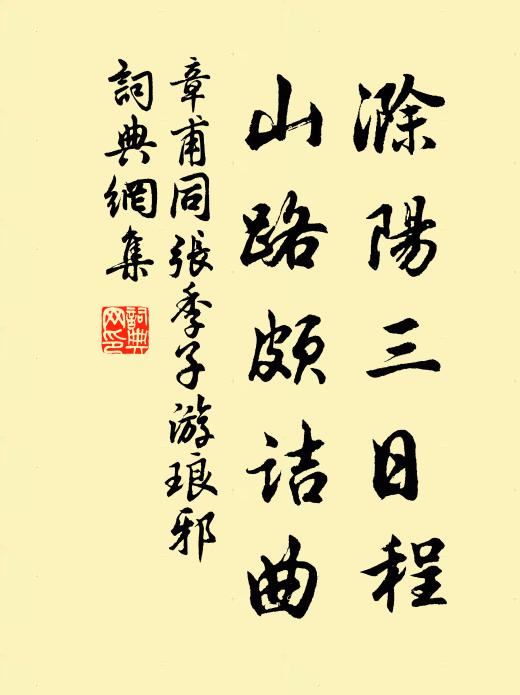 滁陽三日程
山路頗詰曲
章甫同張季子游琅邪
詞典網集
詞典网印